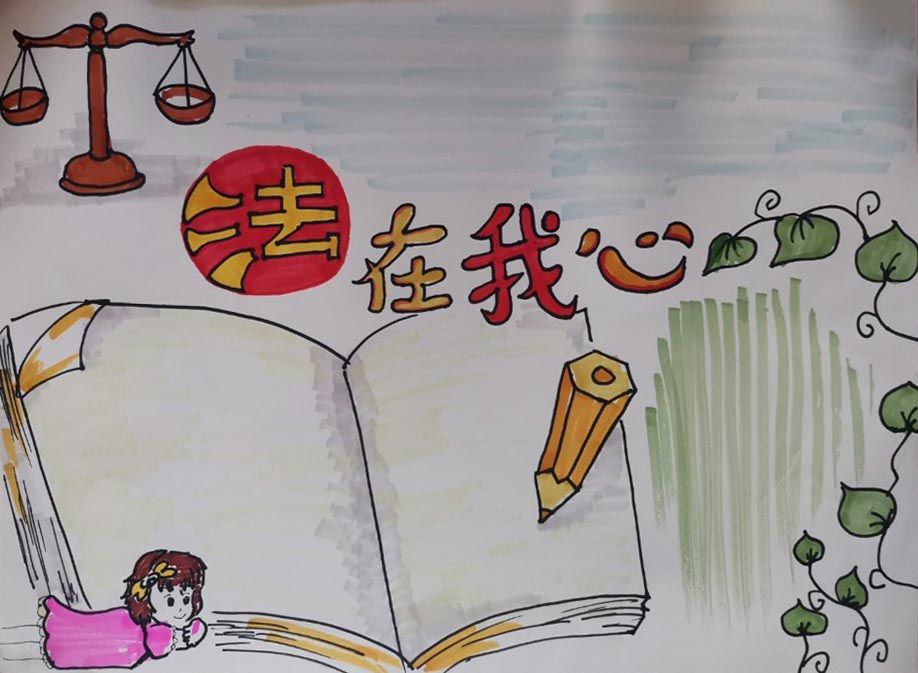 法在我心